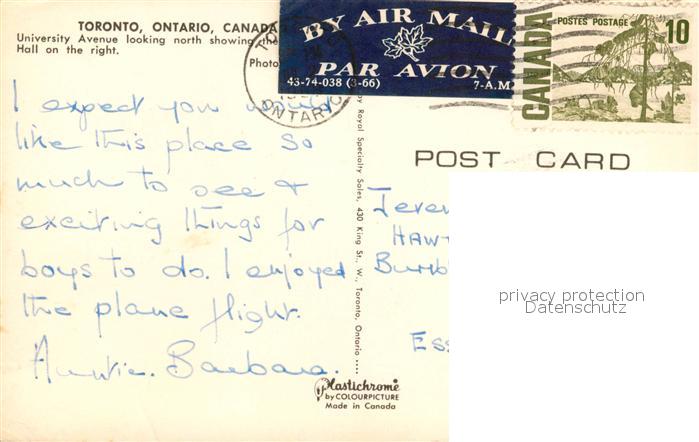 TORONTO, ONTARIO, CANADA
University Avenue looking north showing the
Hall on the right.
Photo
BY AIR MAIL
PAR AVION
43-74-038 (3-66) 7-A.M.
ONTARIO
POSTES POSTAGE
10
CANADA
I expect you would
like this place so
much to see &
exciting things for
boys to do. I enjoyed
the plane flight.
Auntie. Barbara.
by Royal Specialty Sales, 430 King St., W., Toronto, Ontario
POST CARD
privacy protection
Datenschutz
Plastichrome
by COLOURPICTURE
Made in Canada